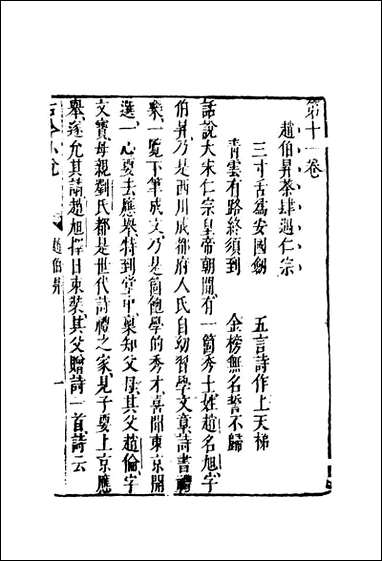 第十一卷
趙伯昇茶肆遇仁宗
三寸舌爲安國劒　五言詩作上天梯
青雲有路終須到　金榜無名誓不歸
話說大宋仁宗皇帝朝間有一箇秀士姓趙名旭字
伯昇乃是西川成都府人氏自幼習學文章詩書禮
樂一覧下筆成文乃是箇飽學的秀才喜聞東京開
選一心要去應舉特到堂中禀知父母其父趙倫字
文寳母親劉氏都是世代詩禮之家見子要上京應
舉遂允其請趙旭擇日束裝其父贈詩一首詩云
古今小說　趙伯昇　一